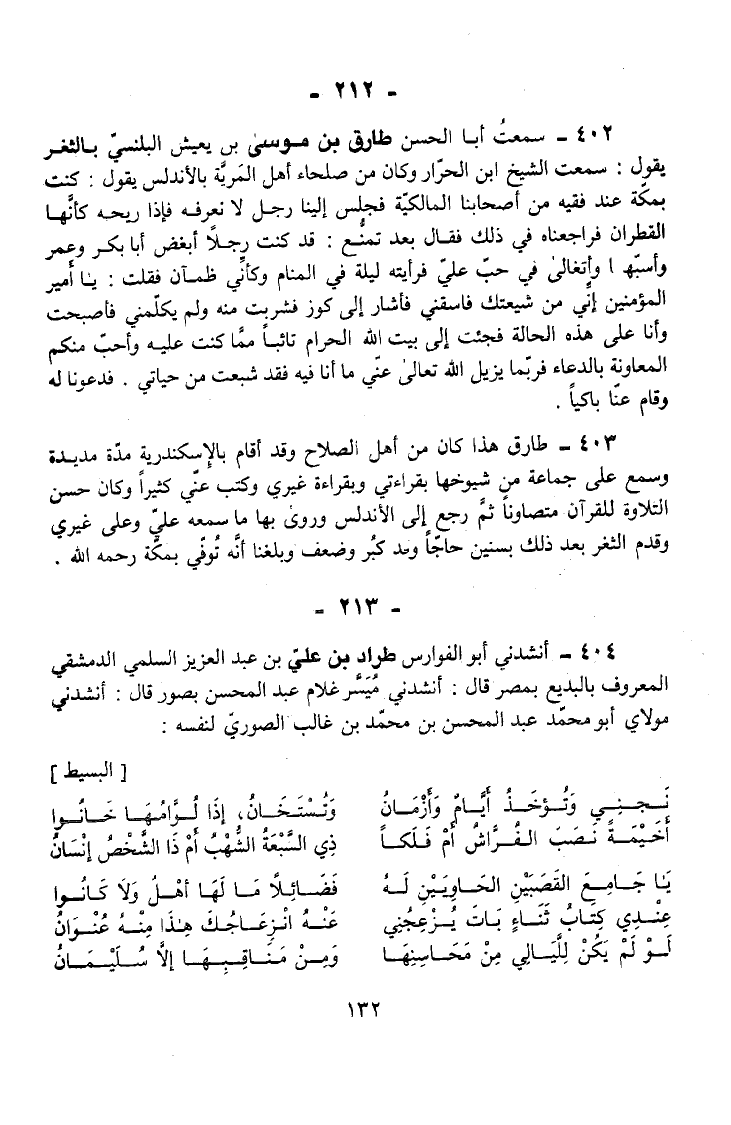 - ٢١٢ -
٤٠٢ - سمعتُ أبا الحسن طارق بن موسىٰ بن يعيش البلنسيّ بالثغر
يقول : سمعت الشيخ ابن الحرّار وكان من صلحاء أهل المَريَّة بالأندلس يقول : كنت
بمكّة عند فقيه من أصحابنا المالكيّة فجلس إلينا رجل لا نعرفه فإذا ريحه كأنَّها
القطران فراجعناه في ذلك فقال بعد تمنُّع : قد كنت رجلاً أبغض أبا بكر وعمر
وأسبّها ا وأتغالىٰ في حبّ عليّ فرأيته ليلة في المنام وكأنّي ظمآن فقلت : يا أمير
المؤمنين إنّي من شيعتك فاسقني فأشار إلى كوز فشربت منه ولم يكلّمني فأصبحت
وأنا على هذه الحالة فجئت إلى بيت الله الحرام تائباً ممّا كنت عليه وأحبّ منكم
المعاونة بالدعاء فربّما يزيل الله تعالىٰ عنّي ما أنا فيه فقد شبعت من حياتي . فدعونا له
وقام عنّا باكياً .
٤٠٣ - طارق هذا كان من أهل الصلاح وقد أقام بالإسكندرية مدّة مديدة
وسمع على جماعة من شيوخها بقراءتي وبقراءة غيري وكتب عنّي كثيراً وكان حسن
التلاوة للقرآن متصاوناً ثمَّ رجع إلى الأندلس وروىٰ بها ما سمعه عليّ وعلى غيري
وقدم الثغر بعد ذلك بسنين حاجّاً وقد كبُر وضعف وبلغنا أنَّه تُوفّي بمكّة رحمه الله .
- ٢١٣ -
٤٠٤ - أنشدني أبو الفوارس طراد بن عليّ بن عبد العزيز السلمي الدمشقي
المعروف بالبديع بمصر قال : أنشدني مُيَسَّر غلام عبد المحسن بصور قال : أنشدني
مولاي أبو محمّد عبد المحسن بن محمّد بن غالب الصوريّ لنفسه :
[ البسيط ]
نَجنِي وَتُؤخَذُ أَيَّامٌ وَأَزْمَانُ وَتُسْتَخَانُ، إِذَا لُوَّامُهَا خَانُوا
أَخَيْمَةً نَصَبَ الفُرَّاشُ أَمْ فَلَكاً ذِي السَّبْعَةُ الشُّهْبُ أَمْ ذَا الشَّخْصُ إِنْسَانُ
يَا جَامِعَ القَصَبَيْنِ الحَاوِيَيْنِ لَهُ فَضَائِلاً مَا لَهَا أَهْلٌ وَلاَ كَانُوا
عِنْدِي كِتَابُ ثَنَاءٍ بَاتَ يُزْعِجُنِي عَنْهُ انْزِعَاجُكَ هٰذَا مِنْهُ عُنْوَانُ
لَوْ لَمْ يَكُنْ لِلَّيَالِي مِنْ مَحَاسِنِهَا وَمِنْ مَنَاقِبِهَا إِلاَّ سُلَيْمَانُ
١٣٢